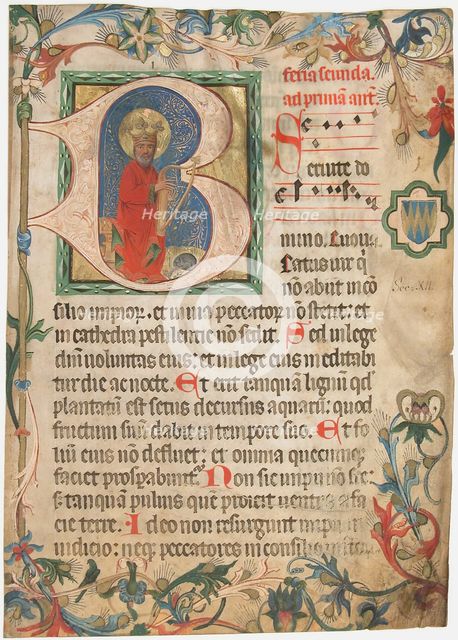 feria scunda.
ad primā ant.
Seruite do
mino. Euou
B
eatus vir q
nō abiit in cō
silio impior. et in via peccator nō stetit: et
in cathedra pestilentie nō sedit. Sed in lege
dnī voluntas eius: et in lege eius meditabi
tur die ac nocte. Et erit tanquā lignū qd
plantatū est secus decursus aquarū: quod
fructum suū dabit in tempore suo. Et fo
liū eius nō defluet: et omnia quecumq
faciet prosperabunt. Non sic impii nō sic:
tanquā puluis quē proicit ventus a fa
cie terre. Ideo non resurgunt impii in
iudicio: neq peccatores in consilio
Heritage
Heritage